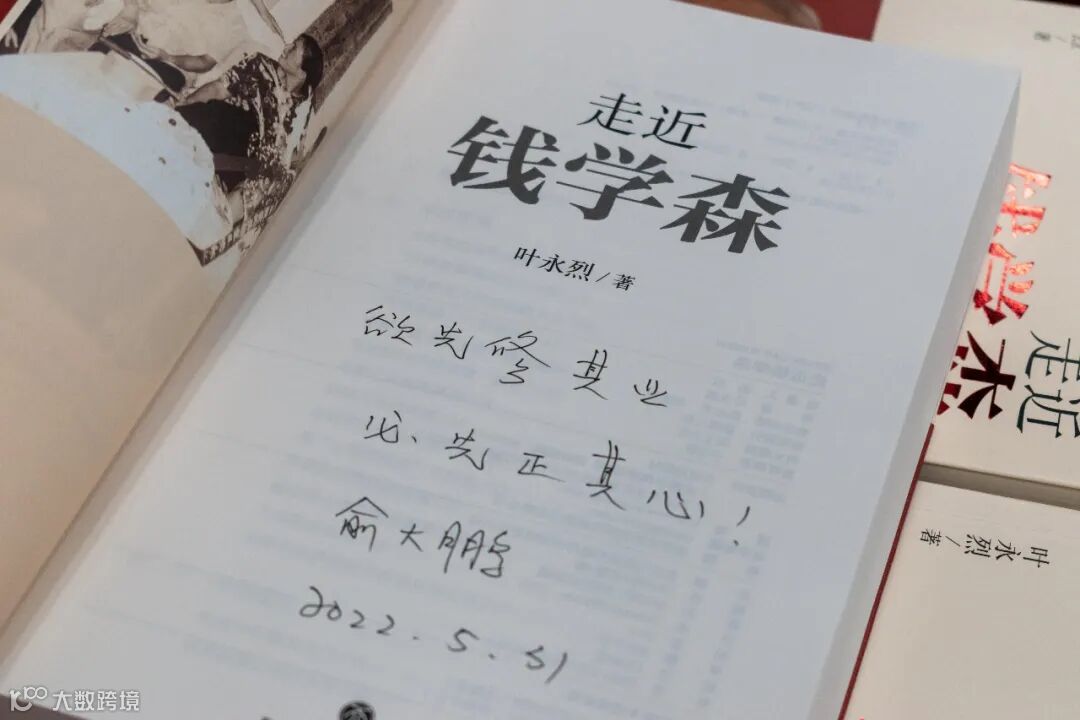 走近
钱学森
叶永烈/著
欲先修其业
必先正其心!
俞大鹏
2022.5.31
走近
叶永烈/著
大数跨境